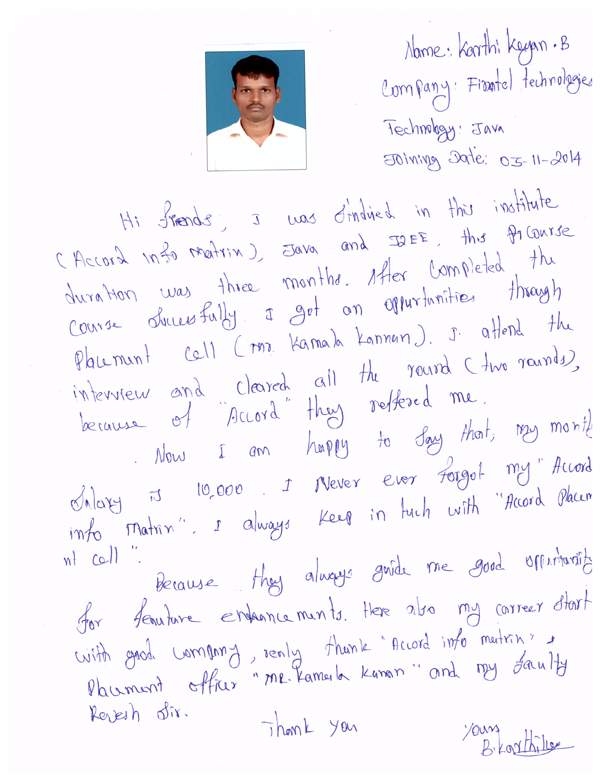 Name: Karthi Keyan.B
Company: Finatel technologies
Technology: Java
Joining Date: 03-11-2014
Hi friends, I was studied in this institute
(Accord info matrin), Java and J2EE, this course
duration was three months. After completed the
course successfully I got an oppurtunities through
Placment cell (mr. Kamala Kannan). I attend the
interview and cleared all the round (two rounds),
because of "Accord" they reffered me.
Now I am happy to say that, my montly
Salary is 10,000. I Never ever forgot my "Accord
info matrin". I always keep in tuch with "Accord Placem
nt cell".
Because they always guide me good oppurtunity
for feauture enhancements. Here also my carreer start
with good company, thank "Accord info matrin",
Placment officer "mr. Kamala Kannan" and my faculty
Revesh Sir.
Thank you
Yours
B.Karthikee